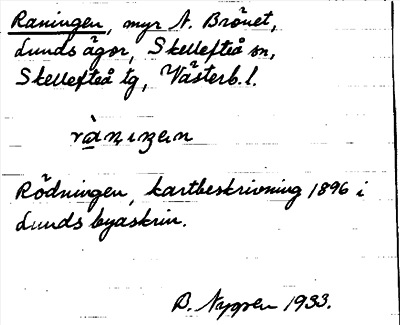 Raningen, myr N. Brönet,
Lunds ägor, Skellefteå sn,
Skellefteå tg, Västerb. l.
Rödningen, kartbeskrivning 1896 i
Lunds byaskrin.
B. Nygren 1933.